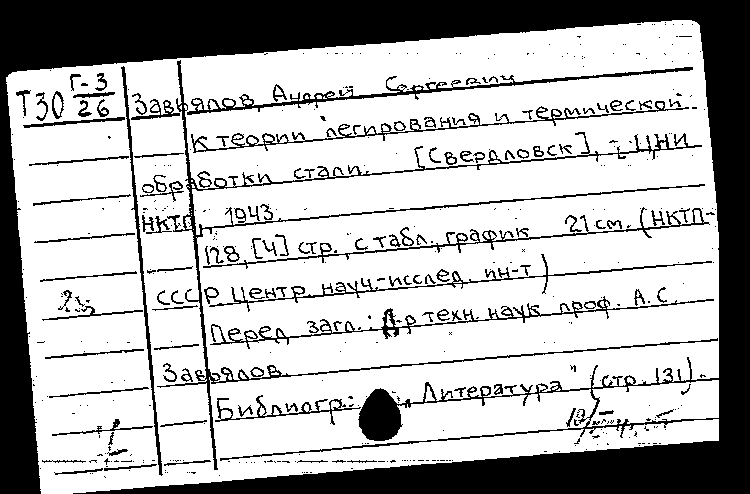 Т30 Г-3/26 Завьялов, Андрей Сергеевич
К теории легирования и термической
обработки стали. [Свердловск], ЦНИИ
НКТП, 1943.
128, [4] стр., с табл., график 21 см. (НКТП-
2э СССР Центр. науч.-исслед. ин-т)
Перед загл.: Д-р техн. наук проф. А.С.
Завьялов.
Библиогр.: „Литература" (стр. 131).